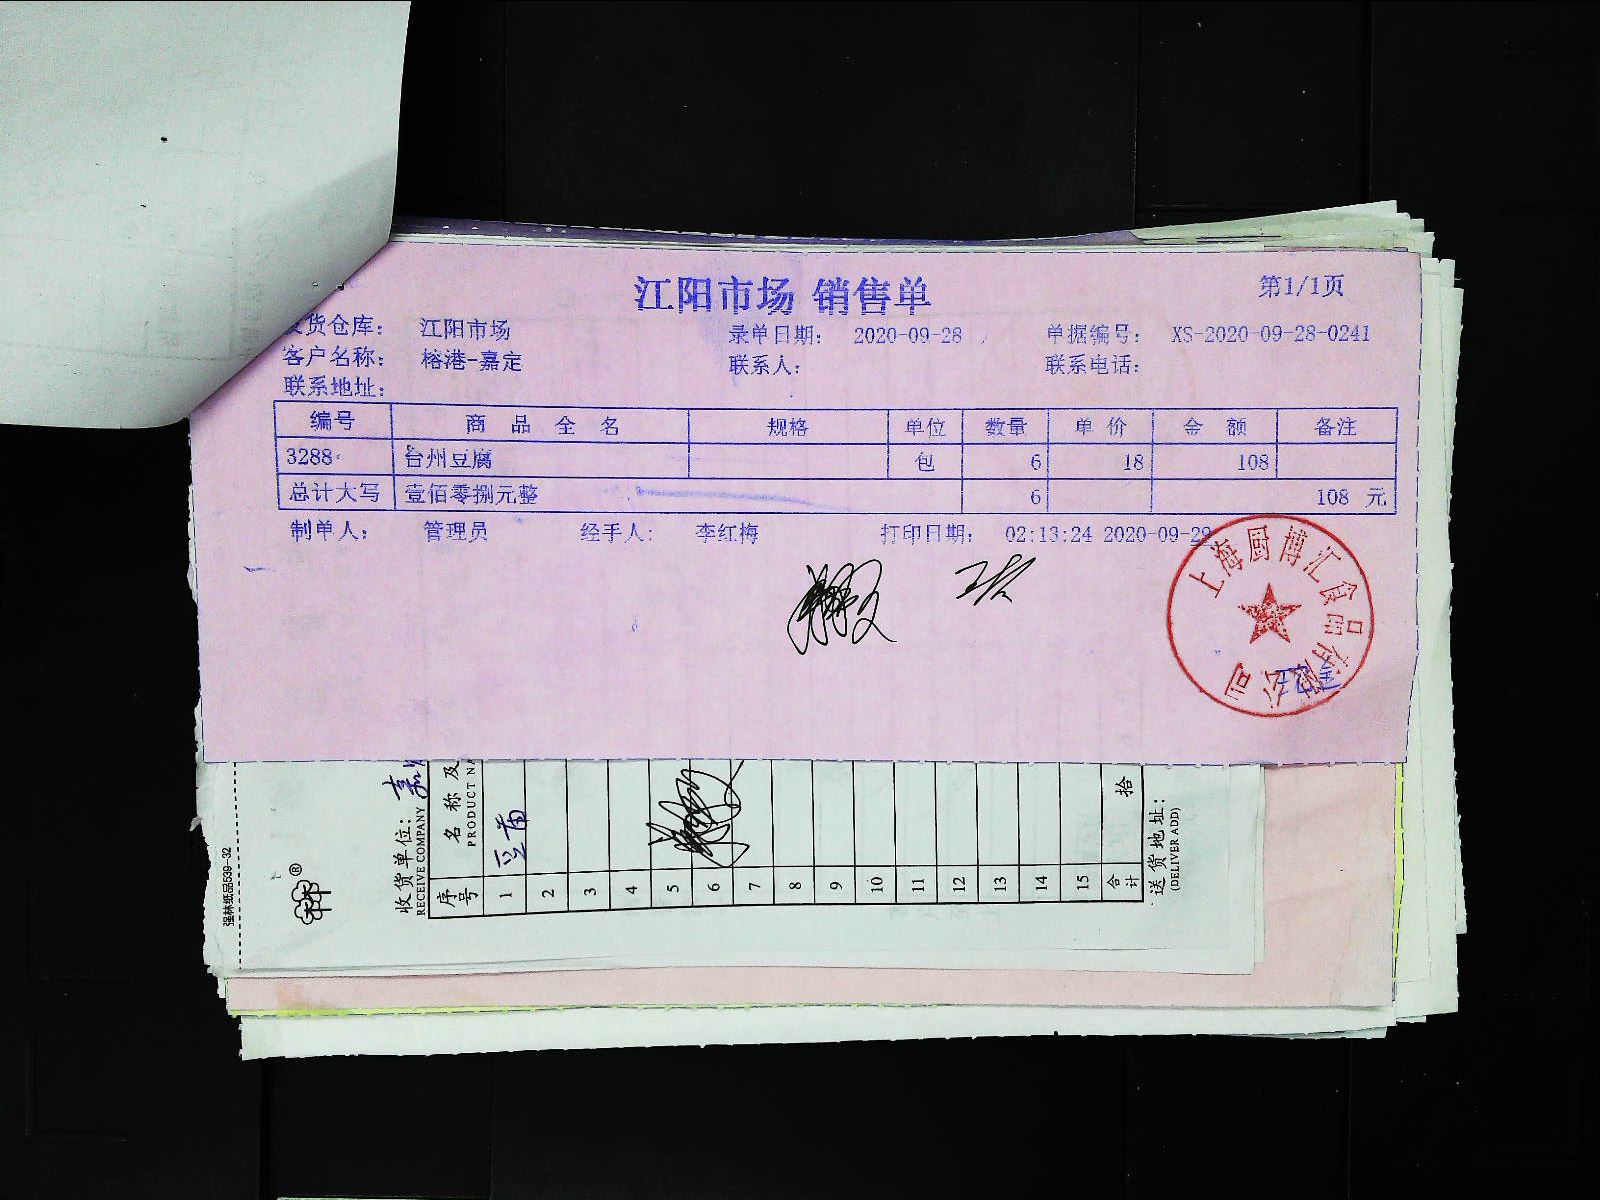 江阳市场 销售单
第1/1页
货仓库： 江阳市场 录单日期： 2020-09-28 单据编号： XS-2020-09-28-0241
客户名称： 榕港-嘉定 联系人： 联系电话：
联系地址：
编号 商品全名 规格 单位 数量 单价 金额 备注
3288 台州豆腐 包 6 18 108
总计大写 壹佰零捌元整 6 108 元
制单人： 管理员 经手人： 李红梅 打印日期： 02:13:24 2020-09-29
上海厨博汇食品有限公司
强林纸品539-32
收货单位：
RECEIVE COMPANY
序号 名称及
PRODUCT NA
1
2
3
4
5
6
7
8
9
10
11
12
13
14
15
合计 拾
送货地址：
(DELIVER ADD)